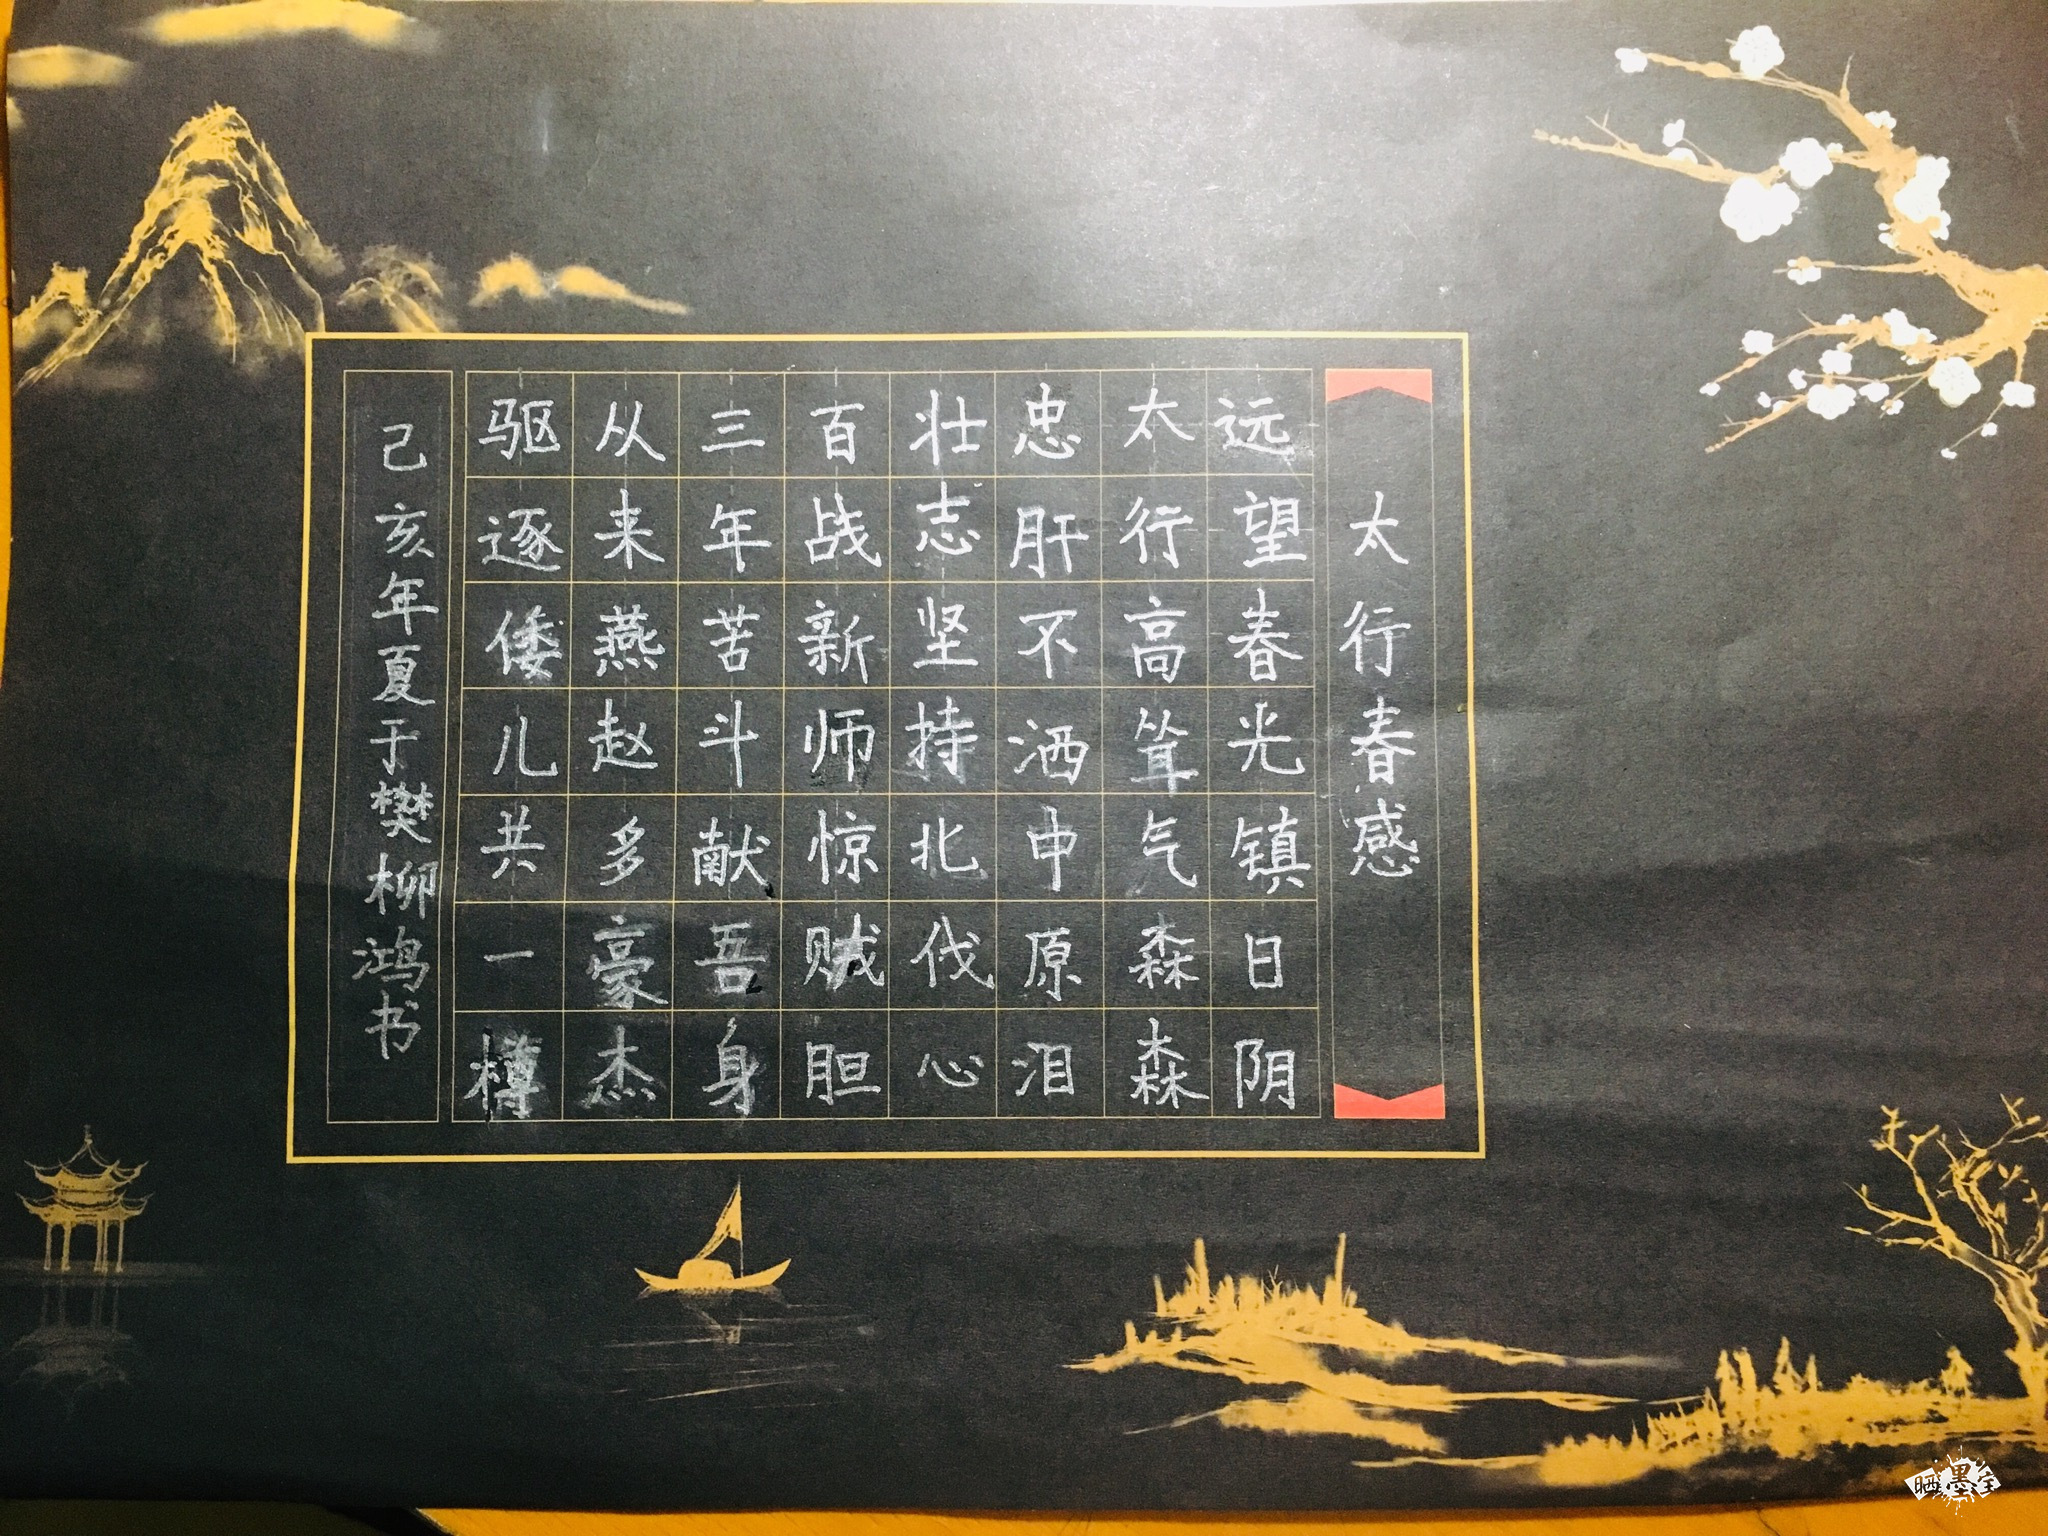 太行春感
远望春光镇日阴
太行高耸气森森
忠肝不洒申原泪
壮志坚持北伐心
百战新师惊贼胆
三年苦斗献吾身
从来燕赵多豪杰
驱逐倭儿共一樽
己亥年夏于樊柳鸿书
晒墨宝